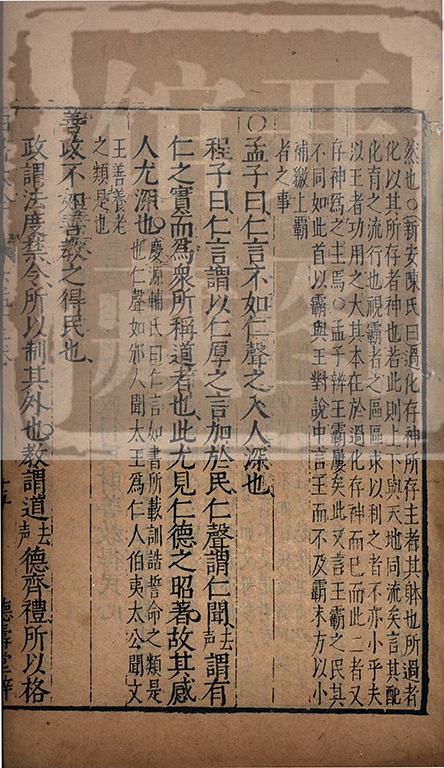 然也○新安陳氏曰過化存神所存主者其躰也所過者
化以其所存者神也若此則上下與天地同流矣言其配
化育之流行也視霸者之區區求以利之者不亦小乎夫
以王者功用之大其本在於過化存神而已而此二者又
存神爲之主焉○孟子辨王霸屢矣此又言王霸之民其
不同如此首以霸與王對說中言王而不及霸末方以小
補繳上霸
者之事
○孟子曰仁言不如仁聲之入人深也
程子曰仁言謂以仁厚之言加於民仁聲謂仁聞去聲謂有
仁之實而爲衆所稱道者也此尤見仁德之昭著故其感
人尤深也慶源輔氏曰仁言如書所載訓誥誓命之類是
也仁聲如邠人聞太王爲仁人伯夷太公聞文
王善養老
之類是也
善政不如善教之得民也
政謂法度禁令所以制其外也教謂道去聲德齊禮所以格
德壽堂梓